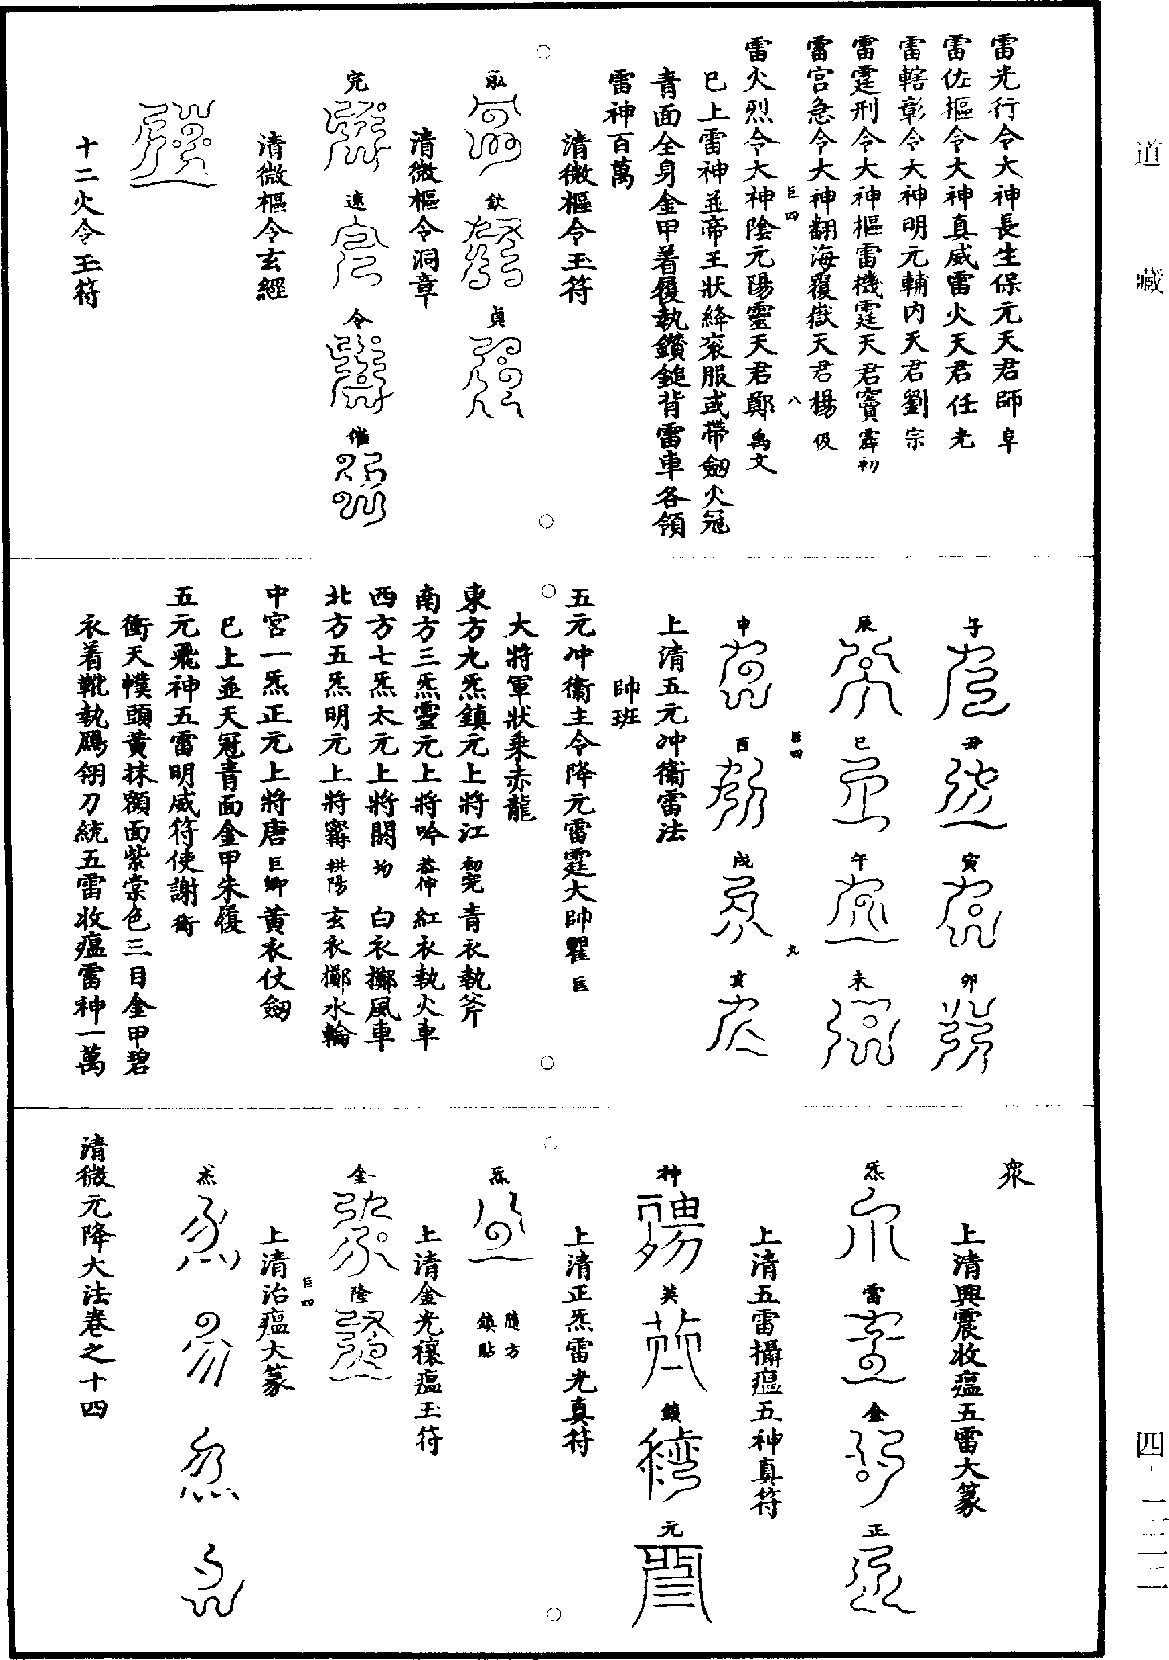 雷光行令大神長生保元天君師 卓
雷佐樞令大神真威雷火天君任 光
雷轄彰令大神明元輔內天君劉 宗
雷霆刑令大神樞雷機霆天君竇 霹初
雷宮急令大神翻海覆嶽天君楊 伋
巨四
八
雷火烈令大神陰元陽靈天君鄭 禹文
已上雷神並帝王狀絳衮服或帶劔火冠
青面全身金甲着履執鑽鎚背雷車各領
雷神百萬
清微樞令玉符
欽
貞
清微樞令洞章
完
速
令
催
清微樞令玄經
十二火令玉符
午
丑
寅
卯
辰
巳
午
未
巨四
九
申
酉
戌
亥
上清五元冲衞雷法
帥班
五元冲衞主令降元雷霆大帥瞿 巨
大將軍狀乘赤龍
東方九炁鎮元上將江 初完 青衣執斧
南方三炁靈元上將吟 紅衣執火車
西方七炁太元上將關 白衣擲風車
北方五炁明元上將 玄衣擲水輪
中宮一炁正元上將唐 巨卿 黃衣仗劔
已上並天冠青面金甲朱履
五元飛神五雷明威符使謝
衝天幞頭黃抹額面紫棠色三目金甲碧
衣着靴執鴈翎刀統五雷收瘟雷神一萬
衆
上清興震收瘟五雷大篆
炁
雷
金
正
上清五雷攝瘟五神真符
神
英
鎮
元
上清正炁雷光真符
炁
隨方
鎮貼
上清金光禳瘟玉符
金
隆
巨四
上清治瘟大篆
炁
清微元降大法卷之十四
道藏
四·一三二